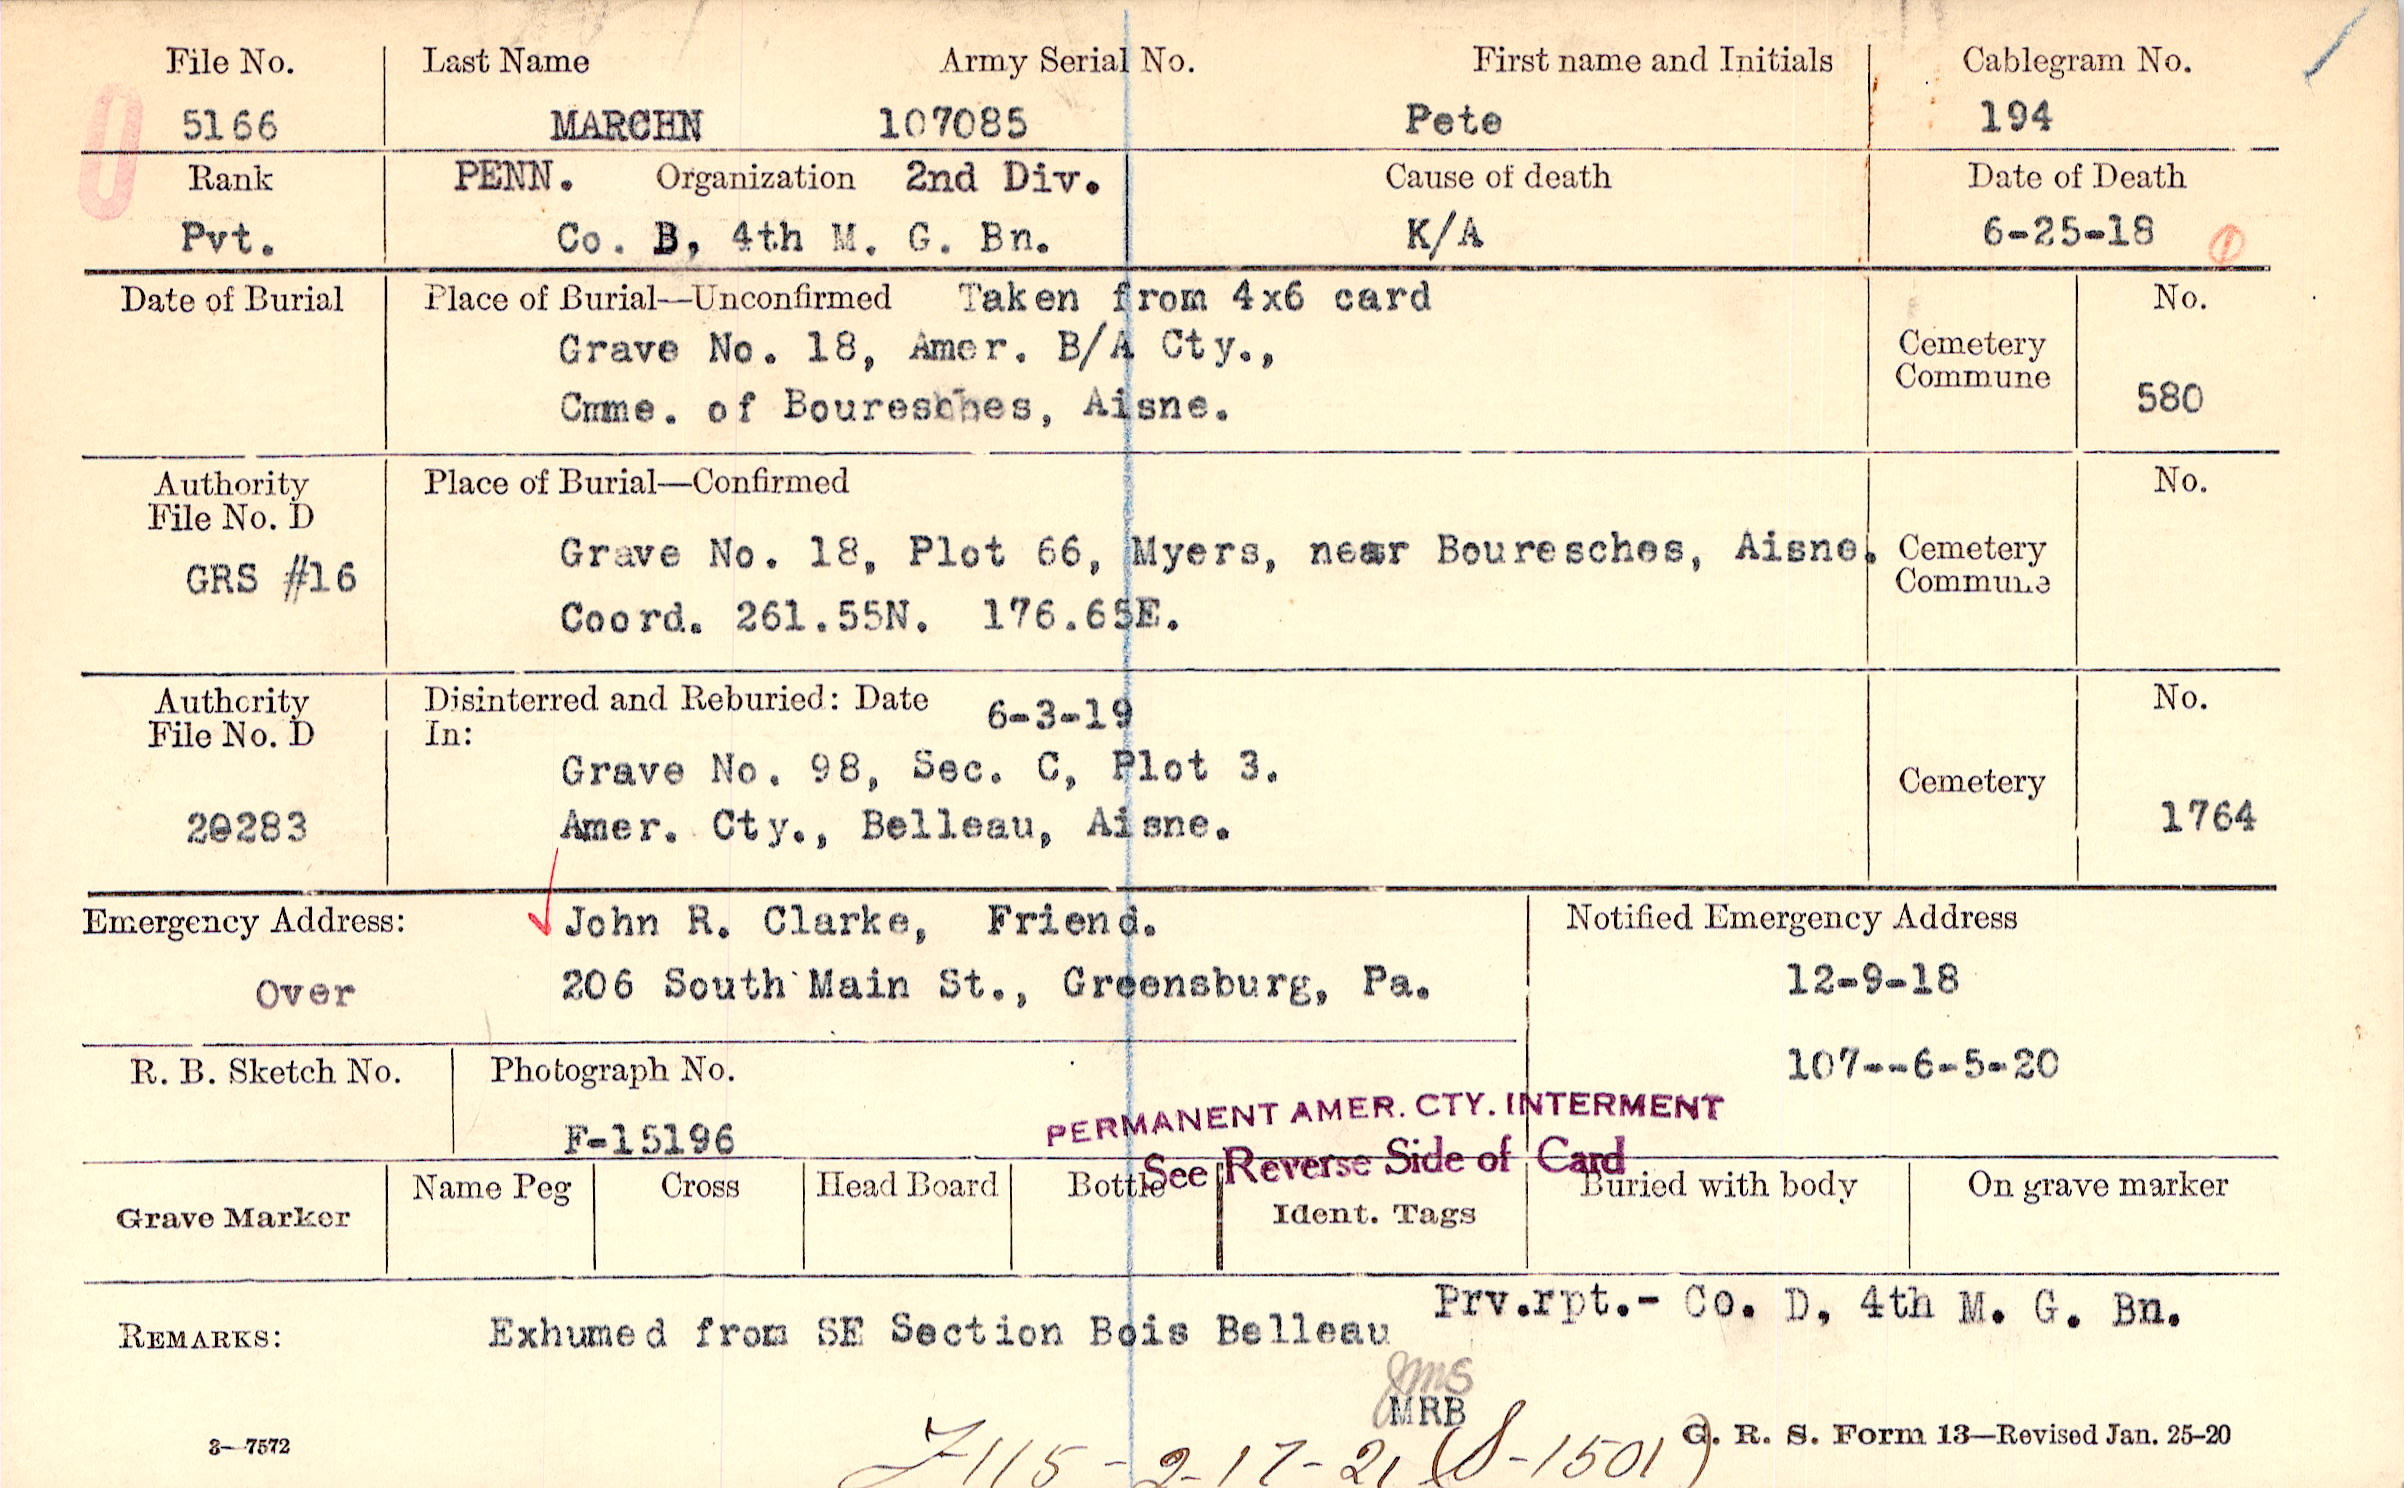 File No. Last Name Army Serial No. First name and Initials Cablegram No.
5166 MARCHN 107085 Pete 194
Rank PENN. Organization 2nd Div. Cause of death Date of Death
Pvt. Co. B, 4th M. G. Bn. K/A 6-25-18
Date of Burial Place of Burial—Unconfirmed Taken from 4x6 card No.
Grave No. 18, Amer. B/A Cty., Cemetery
Commune
Cmme. of Bouresches, Aisne. 580
Authority Place of Burial—Confirmed No.
File No. D
Grave No. 18, Plot 66, Myers, near Bouresches, Aisne. Cemetery
GRS #16 Commune
Coord. 261.55N. 176.65E.
Authority Disinterred and Reburied: Date 6-3-19 No.
File No. D In:
Grave No. 98, Sec. C, Plot 3. Cemetery
20283 Amer. Cty., Belleau, Aisne. 1764
Emergency Address: John R. Clarke, Friend. Notified Emergency Address
Over 206 South Main St., Greensburg, Pa. 12-9-18
R. B. Sketch No. Photograph No. 107--6-5-20
F-15196 PERMANENT AMER. CTY. INTERMENT
See Reverse Side of Card
Grave Marker Name Peg Cross Head Board Bottle Ident. Tags Buried with body On grave marker
Prv.rpt.- Co. D, 4th M. G. Bn.
REMARKS: Exhumed from SE Section Bois Belleau
JMS
MRB
3—7572 G. R. S. Form 13—Revised Jan. 25-20
F115-2-17-21 (S-1501)